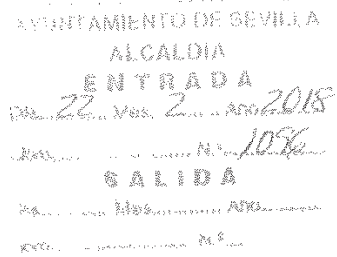 AYUNTAMIENTO DE SEVILLA
ALCALDIA
ENTRADA
Día 22 Mes 2 Año 2018
N.º 1096
SALIDA
Mes Año
N.º